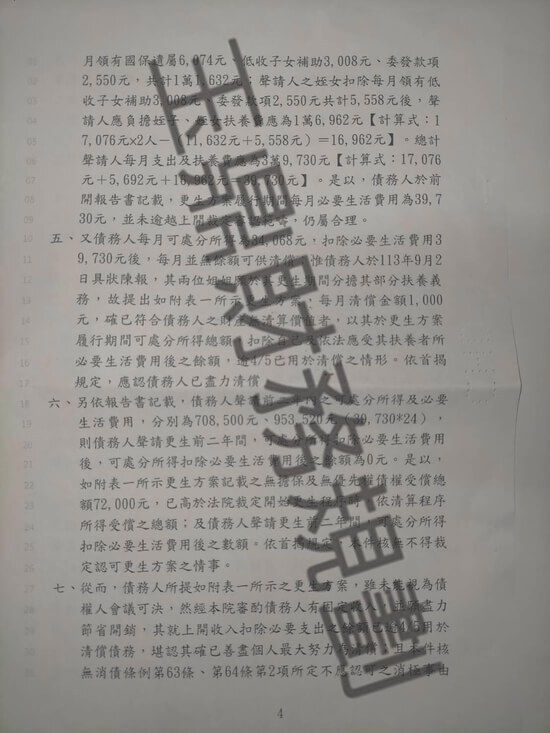 月領有國保遺屬6,074元、低收子女補助3,008元、委發款項
2,550元，共計1萬1,632元；聲請人之姪女扣除每月領有低
收子女補助3,008元、委發款項2,550元共計5,558元後，聲
請人應負擔姪子、姪女扶養費應為1萬6,962元【計算式：1
7,076元x2人－（11,632元＋5,558元）＝16,962元】。總計
聲請人每月支出及扶養費應為3萬9,730元【計算式：17,076
元＋5,692元＋16,962元＝39,730元】。是以，債務人於前
開報告書記載，更生方案履行期間每月必要生活費用為39,7
30元，並未逾越上開裁定審認範疇，仍屬合理。
五、又債務人每月可處分所得為34,068元，扣除必要生活費用3
9,730元後，每月並無餘額可供清償，惟債務人於113年9月2
日具狀陳報，其兩位姐姐願於其更生期間分擔其部分扶養義
務，故提出如附表一所示更生方案，每月清償金額1,000
元，確已符合債務人之財產無清算價值者，以其於更生方案
履行期間可處分所得總額，扣除自己及依法應受其扶養者所
必要生活費用後之餘額，逾4/5已用於清償之情形。依首揭
規定，應認債務人已盡力清償。
六、另依報告書記載，債務人聲請前二年內之可處分所得及必要
生活費用，分別為708,500元、953,520元（39,730*24），
則債務人聲請更生前二年間，可處分所得扣除必要生活費用
後，可處分所得扣除必要生活費用後之餘額為0元。是以，
如附表一所示更生方案記載之無擔保及無優先權債權受償總
額72,000元，已高於法院裁定開始更生程序時，依清算程序
所得受償之總額；及債務人聲請更生前二年間，可處分所得
扣除必要生活費用後之數額。依首揭規定，本件核無不得裁
定認可更生方案之情事。
七、從而，債務人所提如附表一所示之更生方案，雖未能視為債
權人會議可決，然經本院審酌債務人有固定收入，並願盡力
節省開銷，其就上開收入扣除必要支出之餘額已逾4/5用於
清償債務，堪認其確已善盡個人最大努力為清償；且本件核
無消債條例第63條、第64條第2項所定不應認可之消極事由
4